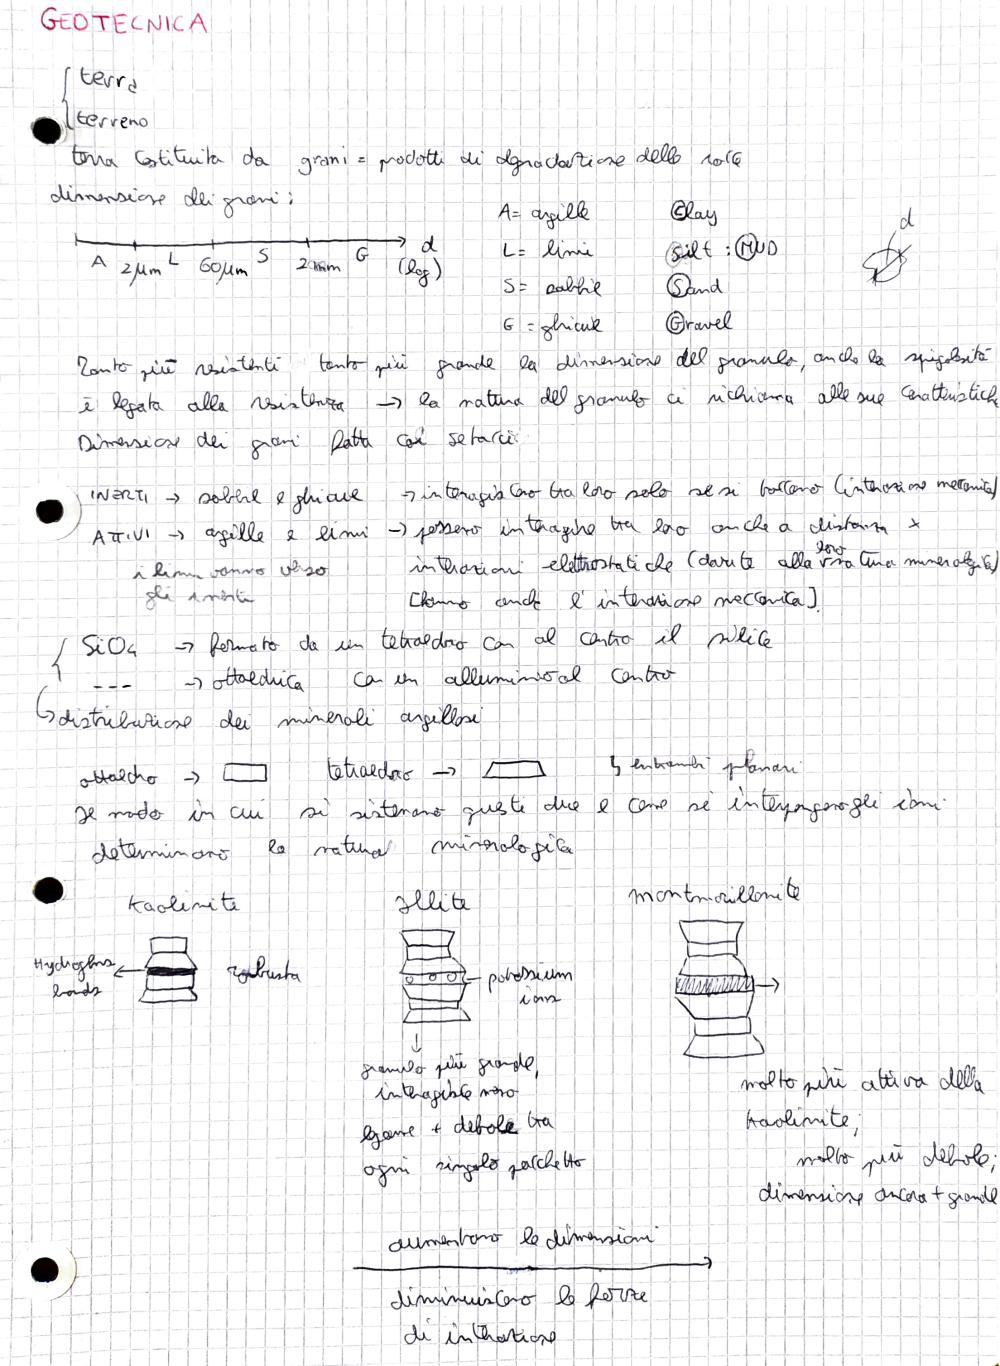 GEOTECNICA
terra
terreno
terra costituita da grani = prodotti di degradazione delle rocce
dimensione dei grani:
A 2μm L 60μm S 2mm G d (log)
A = argille Clay
L = limi Silt : MUD
S = sabbie Sand
G = ghiaie Gravel
d
Tanto più resistenti tanto più grande la dimensione del granulo, anche la spigolosità
è legata alla resistenza → la natura del granulo ci richiama alle sue caratteristiche
Dimensione dei grani fatta coi setacci
INERTI → sabbie e ghiaie → interagiscono tra loro solo se si toccano (interazione meccanica)
ATTIVI → argille e limi → possono interagire tra loro anche a distanza x
i limi vanno verso gli inerti
interazioni elettrostatiche (dovute alla loro natura mineralogica)
[hanno anche l'interazione meccanica].
SiO4 → formato da un tetraedro con al centro il silice
--- → ottaedrica con un alluminio al centro
↳ distribuzione dei minerali argillosi
ottaedro → tetraedro → ↳ entrambi planari
Il modo in cui si sistemano queste due e come si interpongono gli ioni
determinano la natura mineralogica
Kaolinite Illite montmorillonite
Hydrogens bonds
robusta
potassium ions
granulo più grande,
interagisce meno
legame + debole tra
ogni singolo pacchetto
molto più attiva della
kaolinite;
molto più debole;
dimensione ancora + grande
aumentano le dimensioni
diminuiscono le forze
di interazione